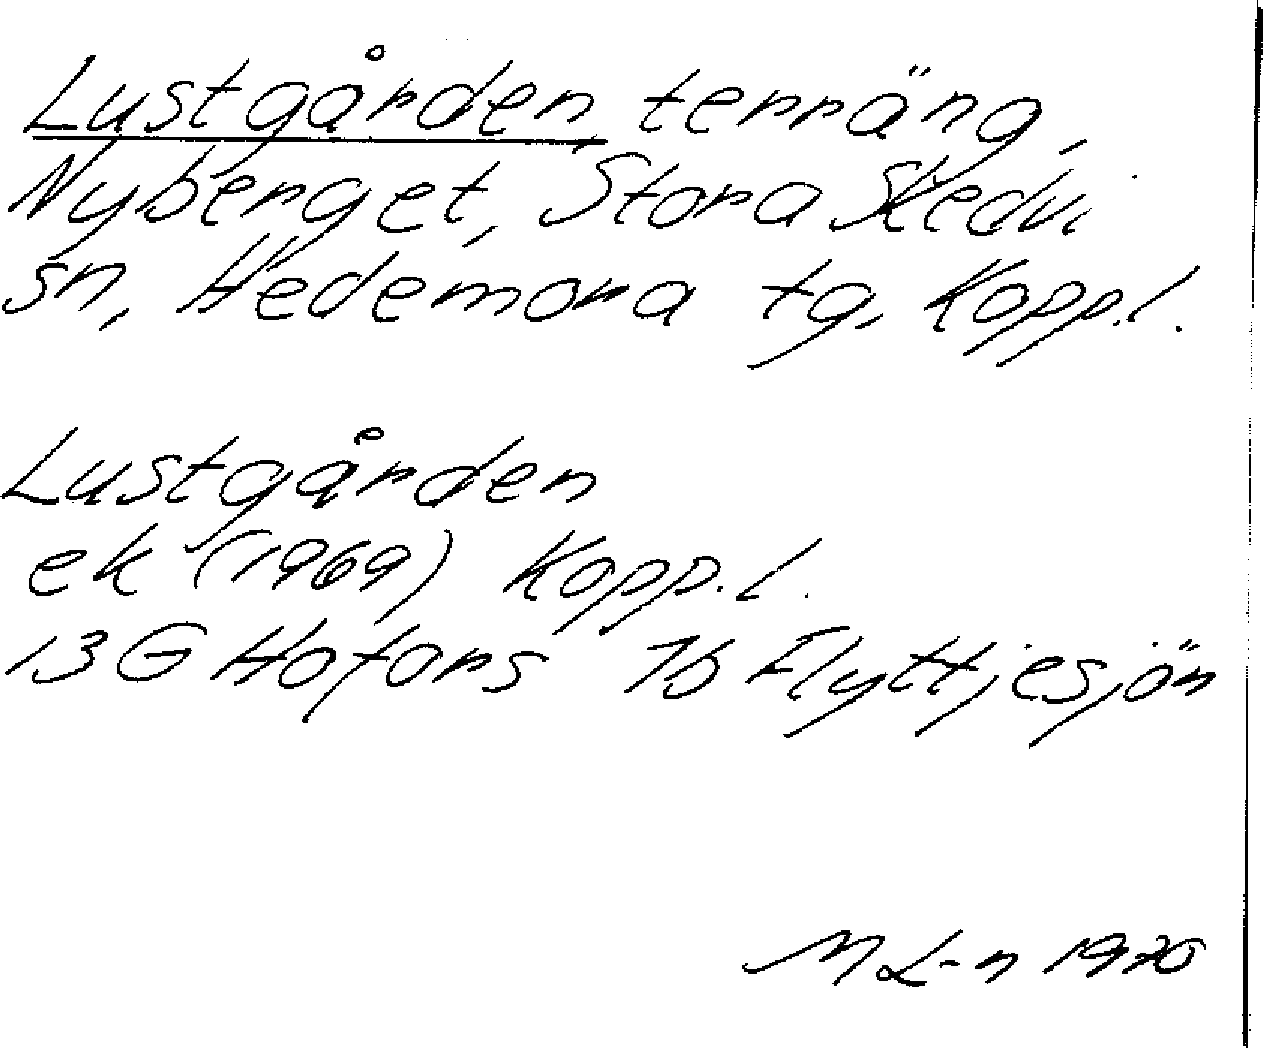 Lustgården, terräng,
Nyberget, Stora Skedvi
sn, Hedemora tg, Kopp.l.
Lustgården
ek (1969) Kopp.l.
13G Hofors 7b Flyttjesjön
M L-n 1970